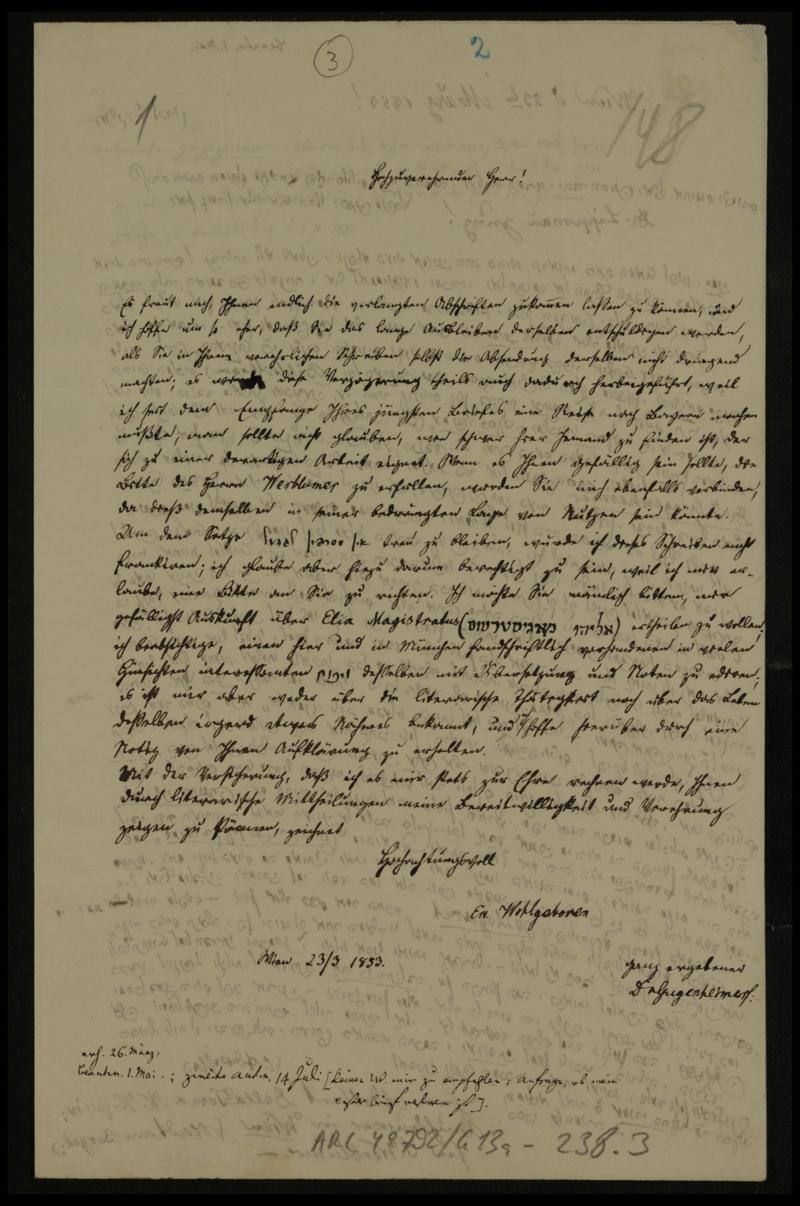 3
2
1
148
Hochzuverehrender Herr!
Es freut mich, Ihnen endlich die verlangten Abschriften zukommen lassen zu können, und
ich hoffe um so eher, daß Sie das lange Ausbleiben derselben entschuldigen werden,
als Sie in Ihrem verehrlichen Schreiben selbst die Absendung derselben nicht dringend
machten; es wurde diese Verzögerung theils auch dadurch herbeigeführt, weil
ich seit dem Empfange Ihres jüngsten Briefes eine Reise nach Bayern machen
mußte; man sollte nicht glauben, wie schwer hier Jemand zu finden ist, der
sich zu einer derartigen Arbeit eignet. Wenn es Ihnen gefällig sein sollte, die
Bitte des Herrn Werblumer zu erfüllen, werden Sie mich ebenfalls verbinden,
da dieß demselben in seiner bedrängten Lage von Nutzen sein könnte.
Um dem Satze treu zu bleiben, würde ich dieses Schreiben nicht
frankiren; ich glaube aber hiezu darum berechtigt zu sein, weil ich mir er-
laube, eine Bitte an Sie zu richten. Ich möchte Sie nämlich bitten, mir
gefälligst Auskunft über Elia Magistratus (אליהו מאגיסטרטוס) ertheilen zu wollen;
ich beabsichtige, einen hier und in München handschriftlich vorhandenen in vielen
Hinsichten interessanten ויכוח desselben mit Übersetzung und Noten zu ediren;
es ist mir aber weder über die literarische Thätigkeit noch über das Leben
desselben irgend etwas Näheres bekannt, und hoffe hierüber durch eine
Notiz von Ihnen Aufklärung zu erhalten.
Mit der Versicherung, daß ich es mir stets zur Ehre rechnen werde, Ihnen
durch literarische Mittheilungen meine Bereitwilligkeit und Verehrung
zeigen zu können, zeichnet
Hochachtungsvoll
Ew. Wohlgeboren
Wien 23/3 1853.
ganz ergebener
Dr Gugenheimer
erh. 26. März,
beantw. 1. Mai.; zweite Antw. 14 Juli [keinen mir zu empfehlen; Anfrage, ob mein
erster Brief verloren ist].
ARC 4°792/G13a - 238.3